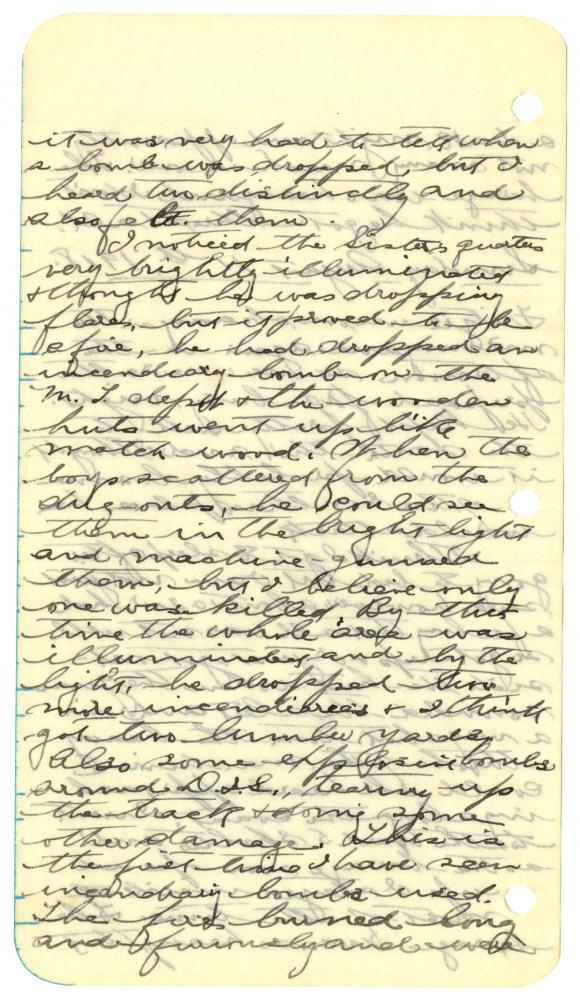 it was very hard to tell when
a bomb was dropped, but I
heard two distinctly and
also felt them.
I noticed the Sisters quarters
very brightly illuminated
& thought he was dropping
flares, but it proved to be
a fire, he had dropped an
incendiary bomb on the
M. T. depot & the wooden
huts went up like
match wood. When the
boys scattered from the
dug-outs, he could see
them in the bright light
and machine-gunned
them, but I believe only
one was killed. By this
time the whole area was
illuminated and by the
light, he dropped two
more incendiaries & I think
got two lumber yards,
Also some explosive bombs
around D.I.L., tearing up
the track & doing some
other damage. This is
the first time I have seen
incendiary bombs used.
The fires burned long
and furiously and were